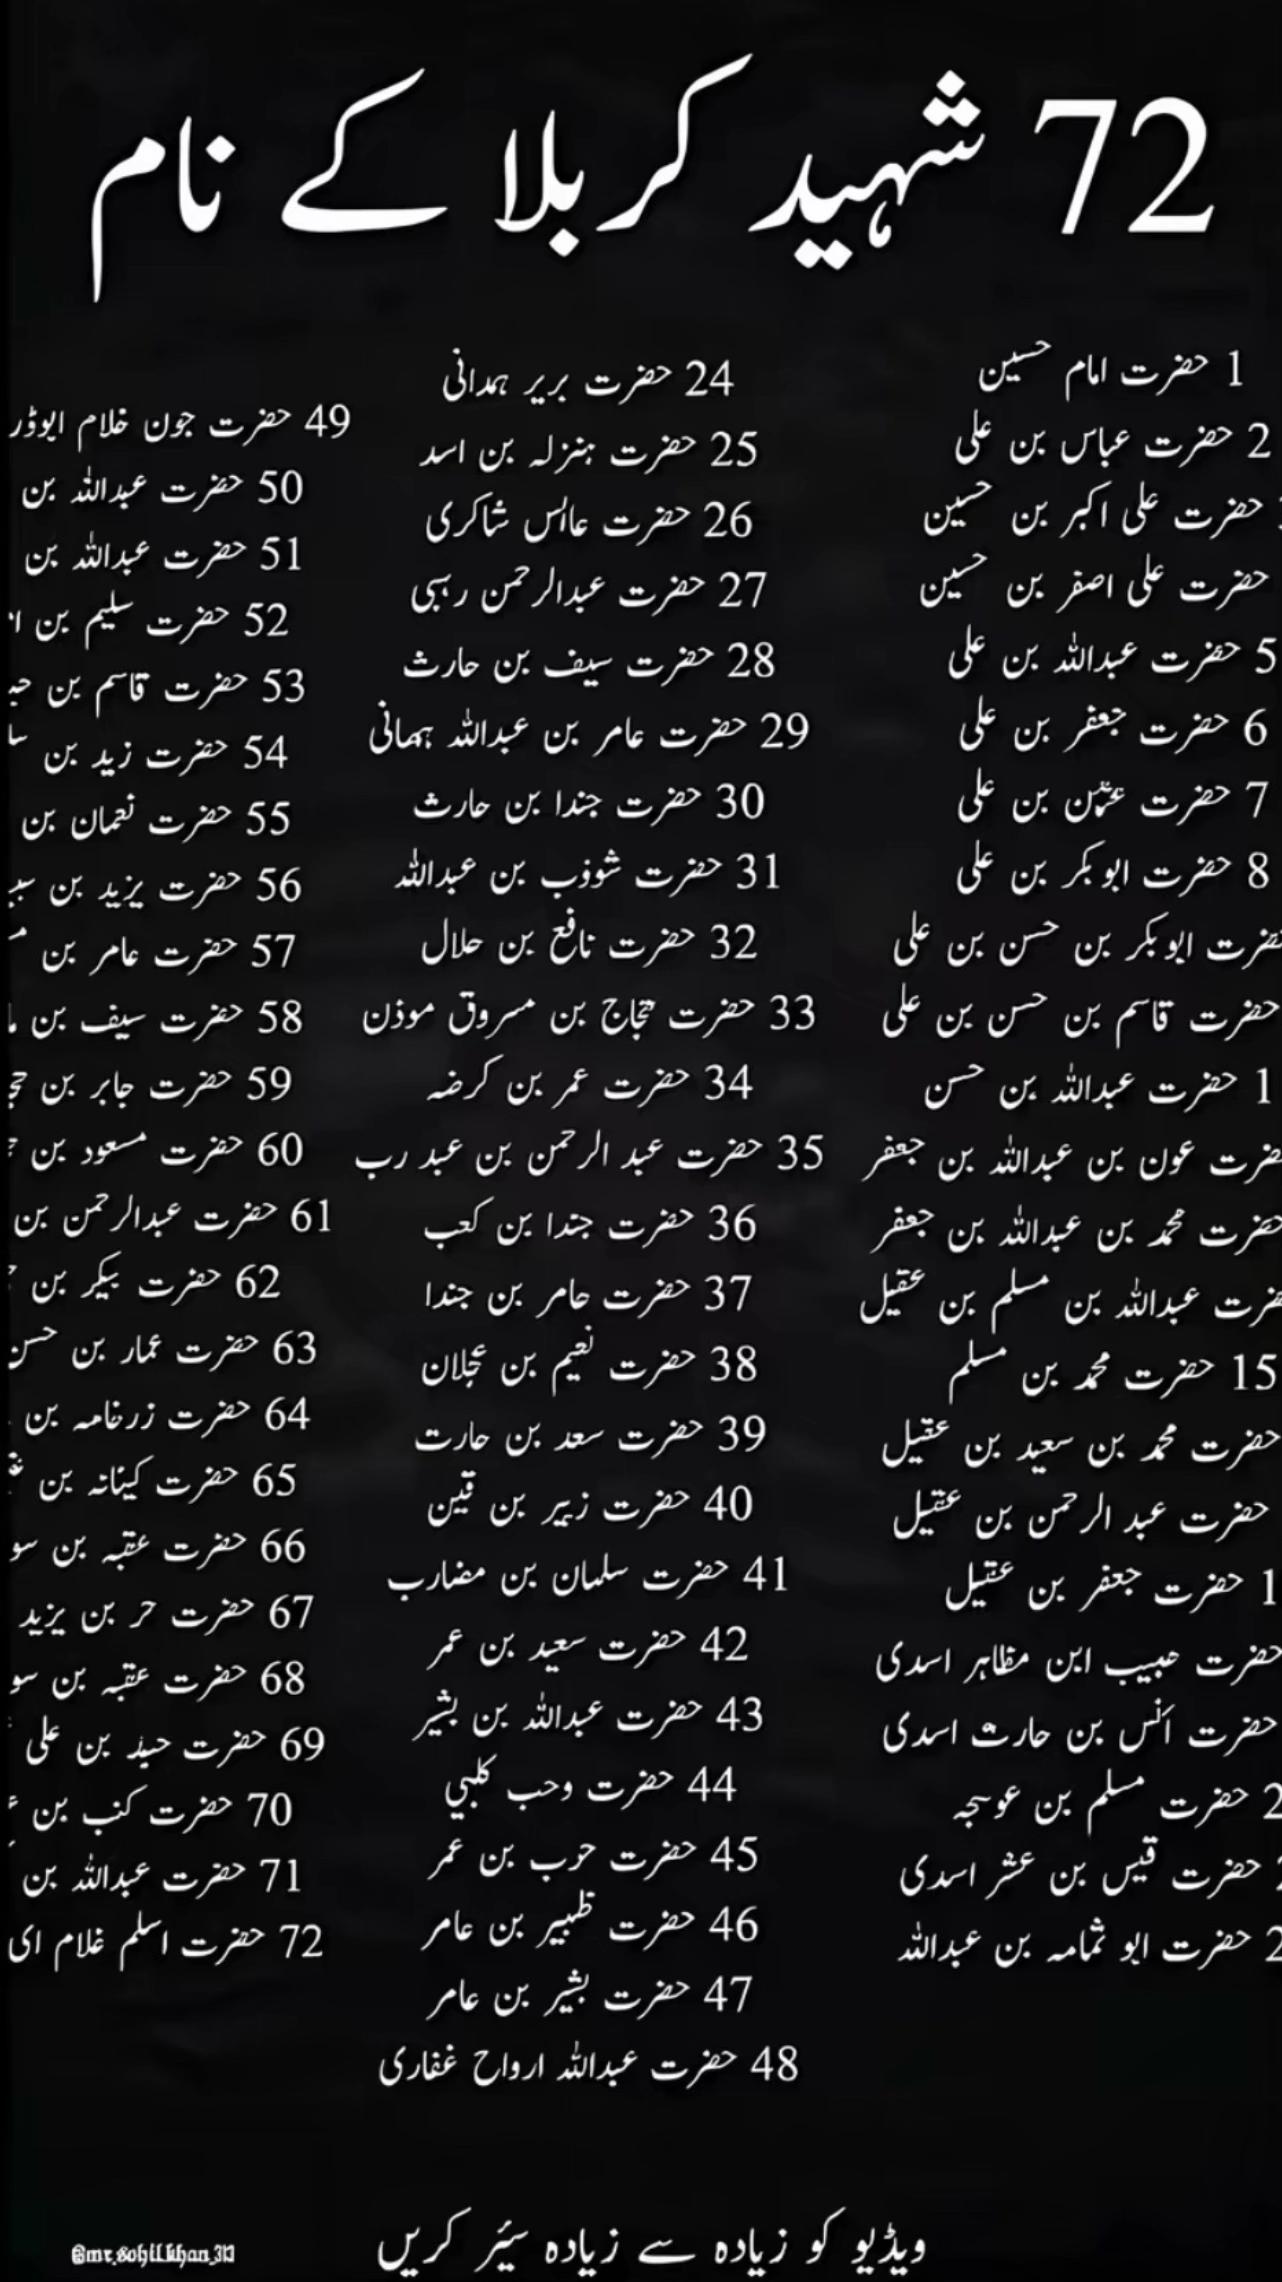 72 شہید کربلا کے نام
1 حضرت امام حسین
2 حضرت عباس بن علی
حضرت علی اکبر بن حسین
حضرت علی اصفر بن حسین
5 حضرت عبداللہ بن علی
6 حضرت جعفر بن علی
7 حضرت بن علی
8 حضرت ابو بکر بن علی
ابوبکر بن حسن بن علی
حضرت قاسم بن حسن بن علی
1 حضرت عبداللہ بن حسن
عون بن عبداللہ بن جعفر
محمد بن عبداللہ بن جعفر
عبداللہ بن مسلم بن عقیل
15 حضرت محمد بن مسلم
حضرت محمد بن سعید بن عقیل
حضرت عبد الرحمن بن عقیل
1 حضرت جعفر بن عقیل
حضرت حبیب ابن مظاہر اسدی
حضرت انس بن حارث اسدی
2 حضرت مسلم بن عوسجہ
حضرت قیس بن عشر اسدی
2 حضرت ابو ثمامہ بن عبداللہ
24 حضرت بریر ہمدانی
25 حضرت ہنزلہ بن اسد
26 حضرت شاکری
27 حضرت عبدالرحمن رہبی
28 حضرت سیف بن حارث
29 حضرت عامر بن عبداللہ ہمانی
30 حضرت جندا بن حارث
31 حضرت شوذب بن عبداللہ
32 حضرت نافع بن حلال
33 حضرت حجاج بن مسروق موذن
34 حضرت عمر بن کرضہ
35 حضرت عبد الرحمن بن عبد رب
36 حضرت جندا بن کعب
37 حضرت عامر بن جندا
38 حضرت نعیم بن عجلان
39 حضرت سعد بن حارت
40 حضرت زبیر بن قین
41 حضرت سلمان بن مضارب
42 حضرت سعید بن عمر
43 حضرت عبداللہ بن بشیر
44 حضرت وحب کلبی
45 حضرت حرب بن عمر
46 حضرت ظہیر بن عامر
47 حضرت بشیر بن عامر
48 حضرت عبداللہ ارواح غفاری
49 حضرت جون غلام ابوڈر
50 حضرت عبداللہ بن
51 حضرت عبداللہ بن
52 حضرت سلیم بن
53 حضرت قاسم بن
54 حضرت زید بن
55 حضرت نعمان بن
56 حضرت یزید بن
57 حضرت عامر بن
58 حضرت سیف بن
59 حضرت جابر بن
60 حضرت مسعود بن
61 حضرت عبدالرحمن بن
62 حضرت بیکر بن
63 حضرت عمار بن حسن
64 حضرت زرغامہ بن
65 حضرت کینانہ بن
66 حضرت عقبہ بن
67 حضرت حر بن یزید
68 حضرت عقبہ بن
69 حضرت بن علی
70 حضرت کنب بن
71 حضرت عبداللہ بن
72 حضرت اسلم غلام ای
ویڈیو کو زیادہ سے زیادہ سیئر کریں
@mr.sohil.khan_313